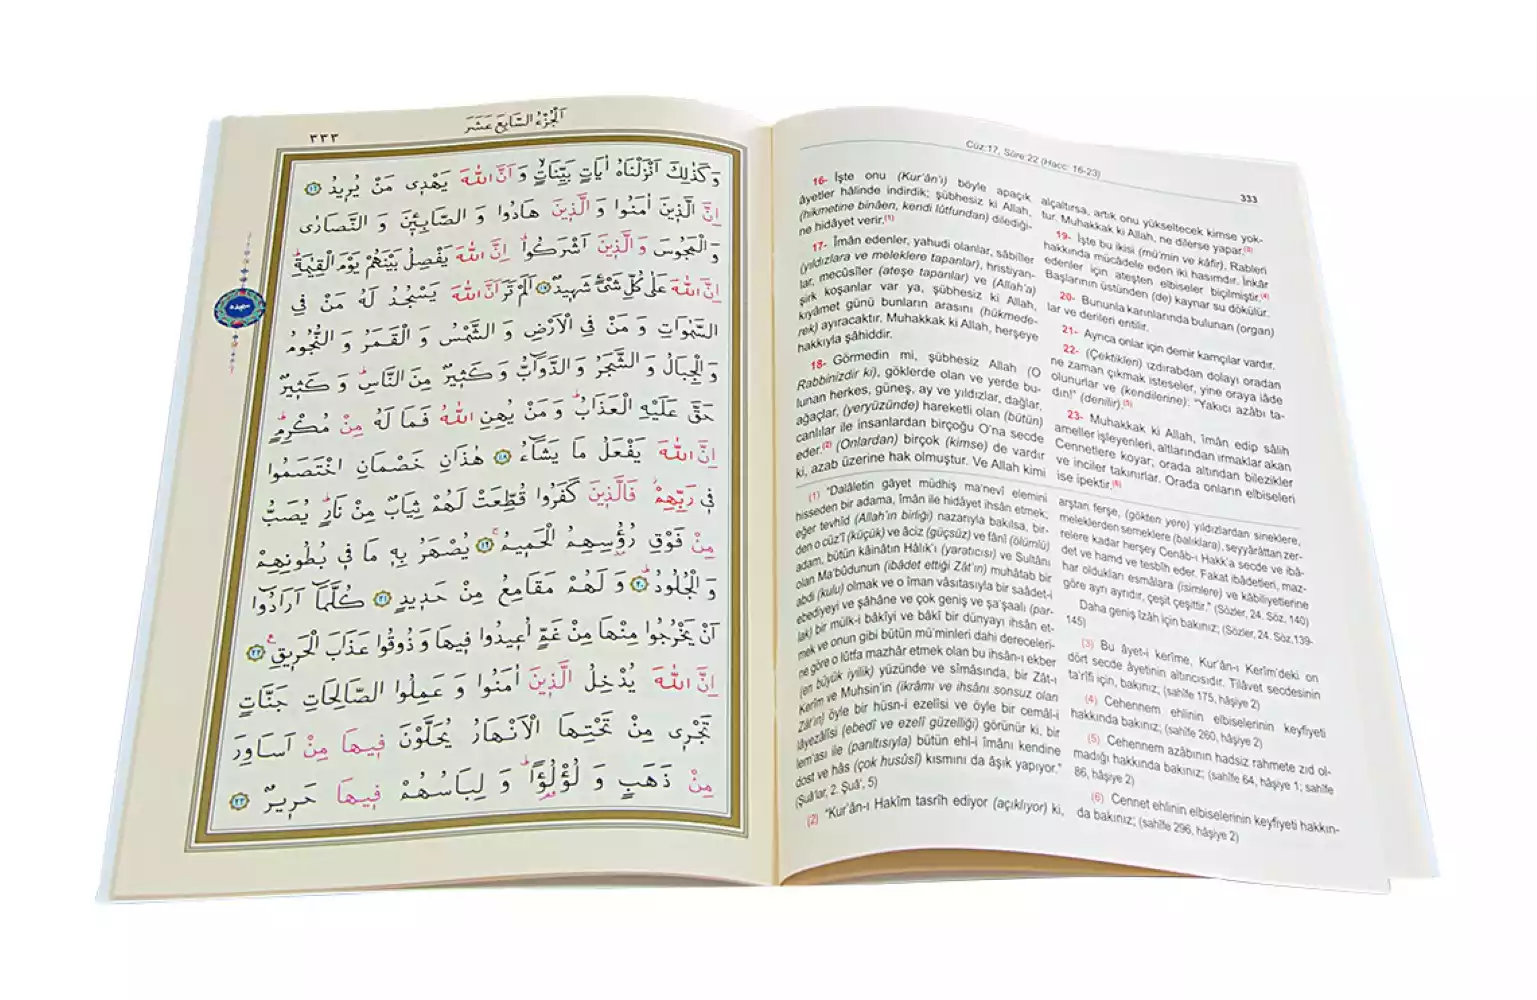 ٣٣٣
اَلْجُزْءُ السَّابِعَ عَشَرَ
وَكَذٰلِكَ اَنْزَلْنَاهُ اٰيَاتٍ بَيِّنَاتٍۙ وَاَنَّ اللّٰهَ يَهْد۪ى مَنْ يُر۪يدُ ﴿١٦﴾
اِنَّ الَّذ۪ينَ اٰمَنُوا وَ الَّذ۪ينَ هَادُوا وَ الصَّابِـ۪ٔينَ وَ النَّصَارٰى
وَ الْمَجُوسَ وَ الَّذ۪ينَ اَشْرَكُواۗ اِنَّ اللّٰهَ يَفْصِلُ بَيْنَهُمْ يَوْمَ الْقِيٰمَةِۜ
اِنَّ اللّٰهَ عَلٰى كُلِّ شَىْءٍ شَه۪يدٌ ﴿١٧﴾ اَلَمْ تَرَ اَنَّ اللّٰهَ يَسْجُدُ لَهُ مَنْ فِى
السَّمٰوَاتِ وَ مَنْ فِى الْاَرْضِ وَ الشَّمْسُ وَ الْقَمَرُ وَ النُّجُومُ
وَ الْجِبَالُ وَ الشَّجَرُ وَ الدَّوَٓابُّ وَ كَث۪يرٌ مِنَ النَّاسِۜ وَ كَث۪يرٌ
حَقَّ عَلَيْهِ الْعَذَابُۜ وَ مَنْ يُهِنِ اللّٰهُ فَمَا لَهُ مِنْ مُكْرِمٍۜ
اِنَّ اللّٰهَ يَفْعَلُ مَا يَشَٓاءُ ﴿١٨﴾ هٰذَانِ خَصْمَانِ اخْتَصَمُوا
ف۪ى رَبِّهِمْۘ فَالَّذ۪ينَ كَفَرُوا قُطِّعَتْ لَهُمْ ثِيَابٌ مِنْ نَارٍۜ يُصَبُّ
مِنْ فَوْقِ رُؤُ۫سِهِمُ الْحَم۪يمُۚ ﴿١٩﴾ يُصْهَرُ بِه۪ مَا ف۪ى بُطُونِهِمْ
وَ الْجُلُودُۜ ﴿٢٠﴾ وَ لَهُمْ مَقَامِعُ مِنْ حَد۪يدٍ ﴿٢١﴾ كُلَّمَٓا اَرَادُٓوا
اَنْ يَخْرُجُوا مِنْهَا مِنْ غَمٍّ اُع۪يدُوا ف۪يهَا وَ ذُوقُوا عَذَابَ الْحَر۪يقِ۟ ﴿٢٢﴾
اِنَّ اللّٰهَ يُدْخِلُ الَّذ۪ينَ اٰمَنُوا وَ عَمِلُوا الصَّالِحَاتِ جَنَّاتٍ
تَجْر۪ى مِنْ تَحْتِهَا الْاَنْهَارُ يُحَلَّوْنَ ف۪يهَا مِنْ اَسَاوِرَ
مِنْ ذَهَبٍ وَ لُؤْلُؤًاۜ وَ لِبَاسُهُمْ ف۪يهَا حَر۪يرٌ ﴿٢٣﴾
سجده
Cüz:17, Sûre:22 (Hacc: 16-23)
333
16- İşte onu (Kur'ân'ı) böyle apaçık
âyetler hâlinde indirdik; şübhesiz ki Allah,
(hikmetine binâen, kendi lütfundan) dilediği-
ne hidâyet verir.(1)
17- Îmân edenler, yahudi olanlar, sâbiîler
(yıldızlara ve meleklere tapanlar), hristiyan-
lar, mecûsîler (ateşe tapanlar) ve (Allah'a)
şirk koşanlar var ya, şübhesiz ki Allah,
kıyâmet günü bunların arasını (hükmede-
rek) ayıracaktır. Muhakkak ki Allah, herşeye
hakkıyla şâhiddir.
18- Görmedin mi, şübhesiz Allah (O
Rabbinizdir ki), göklerde olan ve yerde bu-
lunan herkes, güneş, ay ve yıldızlar, dağlar,
ağaçlar, (yeryüzünde) hareketli olan (bütün)
canlılar ile insanlardan birçoğu O'na secde
eder.(2) (Onlardan) birçok (kimse) de vardır
ki, azab üzerine hak olmuştur. Ve Allah kimi
alçaltırsa, artık onu yükseltecek kimse yok-
tur. Muhakkak ki Allah, ne dilerse yapar.(3)
19- İşte bu ikisi (mü'min ve kâfir), Rableri
hakkında mücâdele eden iki hasımdır. İnkâr
edenler için ateşten elbiseler biçilmiştir.(4)
Başlarının üstünden (de) kaynar su dökülür.
20- Bununla karınlarında bulunan (organ)
lar ve derileri eritilir.
21- Ayrıca onlar için demir kamçılar vardır.
22- (Çektikleri) ızdırabdan dolayı oradan
ne zaman çıkmak isteseler, yine oraya iâde
olunurlar ve (kendilerine): "Yakıcı azâbı ta-
dın!" (denilir).(5)
23- Muhakkak ki Allah, îmân edip sâlih
ameller işleyenleri, altlarından ırmaklar akan
Cennetlere koyar; orada altından bilezikler
ve inciler takınırlar. Orada onların elbiseleri
ise ipektir.(6)
(1) "Dalâletin gâyet müdhiş ma'nevî elemini
hisseden bir adama, îmân ile hidâyet ihsân etmek;
eğer tevhîd (Allah'ın birliği) nazarıyla bakılsa, bir-
den o cüz'î (küçük) ve âciz (güçsüz) ve fânî (ölümlü)
adam, bütün kâinâtın Hâlık'ı (yaratıcısı) ve Sultânı
olan Ma'bûdunun (ibâdet ettiği Zât'ın) muhâtab bir
abdi (kulu) olmak ve o îman vâsıtasıyla bir saâdet-i
ebediyeyi ve şâhâne ve çok geniş ve şa'şaalı (par-
lak) bir mülk-i bâkîyi ve bâkî bir dünyayı ihsân et-
mek ve onun gibi bütün mü'minleri dahi dereceleri-
ne göre o lûtfa mazhâr etmek olan bu ihsân-ı ekber
(en büyük iyilik) yüzünde ve sîmâsında, bir Zât-ı
Kerîm ve Muhsin'in (ikrâmı ve ihsânı sonsuz olan
Zât'ın) öyle bir hüsn-i ezelîsi ve öyle bir cemâl-i
lâyezâlîsi (ebedî ve ezelî güzelliği) görünür ki, bir
lem'ası ile (parıltısıyla) bütün ehl-i îmânı kendine
dost ve hâs (çok husûsî) kısmını da âşık yapıyor."
(Şuâ'lar, 2. Şuâ', 5)
(2) "Kur'ân-ı Hakîm tasrîh ediyor (açıklıyor) ki,
arştan ferşe, (gökten yere) yıldızlardan sineklere,
meleklerden semeklere (balıklara), seyyârâttan zer-
relere kadar herşey Cenâb-ı Hakk'a secde ve ibâ-
det ve hamd ve tesbîh eder. Fakat ibâdetleri, maz-
har oldukları esmâlara (isimlere) ve kâbiliyetlerine
göre ayrı ayrıdır, çeşit çeşittir." (Sözler, 24. Söz, 140)
Daha geniş îzâh için bakınız; (Sözler, 24. Söz,139-
145)
(3) Bu âyet-i kerîme, Kur'ân-ı Kerîm'deki on
dört secde âyetinin altıncısıdır. Tilâvet secdesinin
ta'rîfi için, bakınız; (sahîfe 175, hâşiye 2)
(4) Cehennem ehlinin elbiselerinin keyfiyeti
hakkında bakınız; (sahîfe 260, hâşiye 2)
(5) Cehennem azâbının hadsiz rahmete zıd ol-
madığı hakkında bakınız; (sahîfe 64, hâşiye 1; sahîfe
86, hâşiye 2)
(6) Cennet ehlinin elbiselerinin keyfiyeti hakkın-
da bakınız; (sahîfe 296, hâşiye 2)